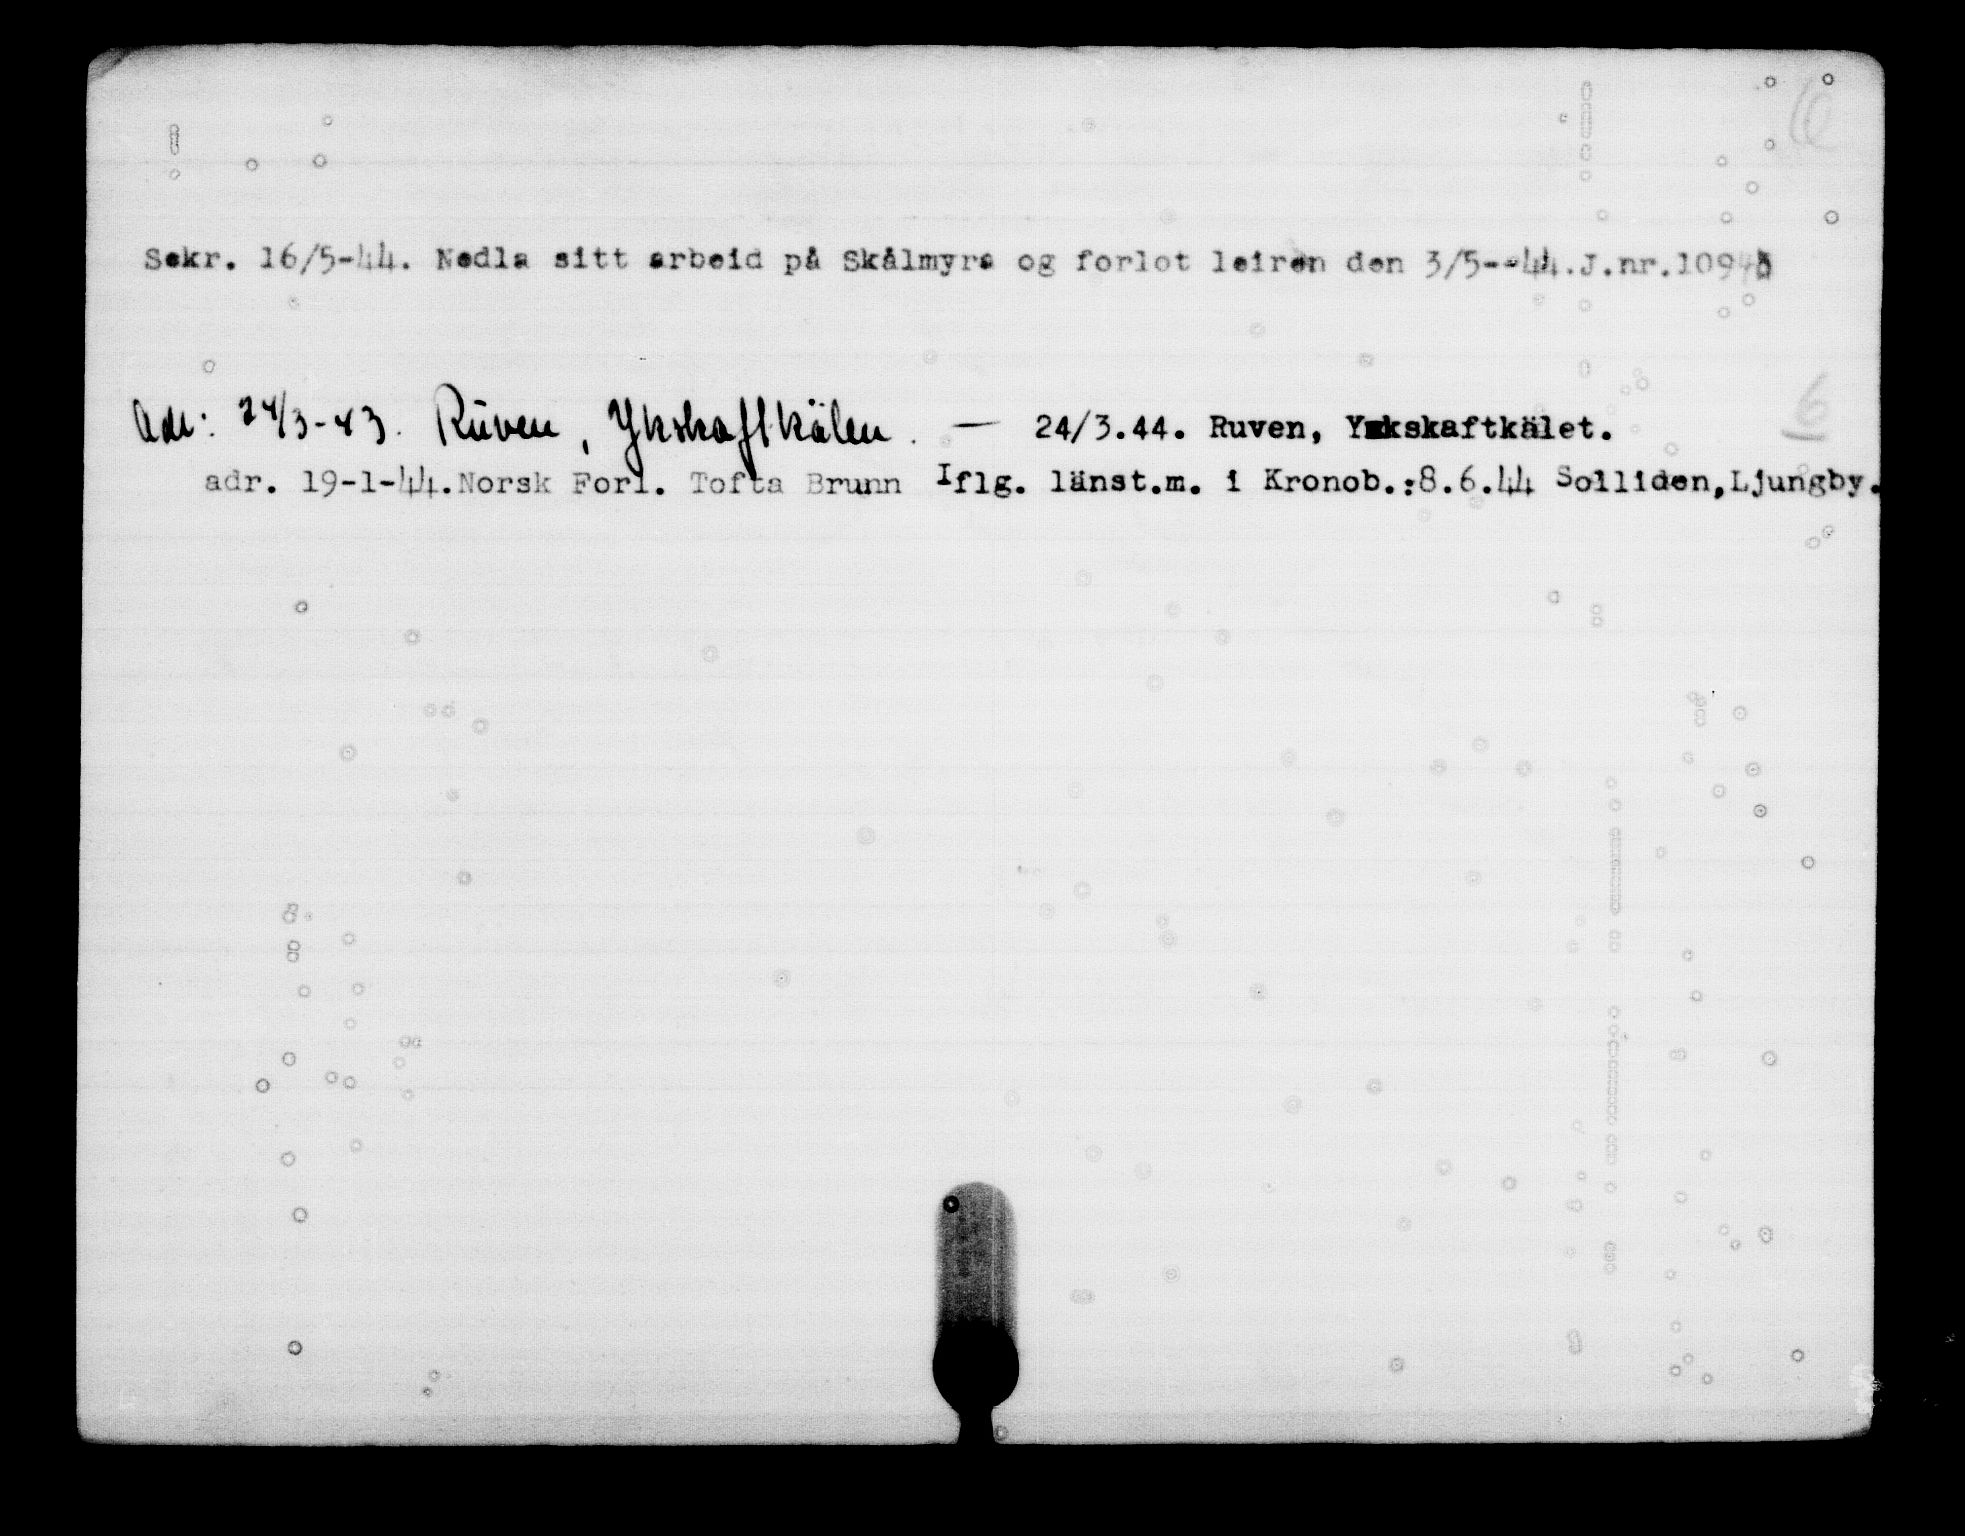 6
Sekr. 16/5-44. Nedla sitt arbeid på Skålmyra og forlot leiren den 3/5--44.J.nr.
6
Adr: 24/3-43. Rüven, Ykskaftkälen. — 24/3.44. Ruven, Ykskaftkälet.
adr. 19-1-44.Norsk Forl. Tofta Brunn Iflg. länst.m. i Kronob.:8.6.44 Solliden,Ljungby.